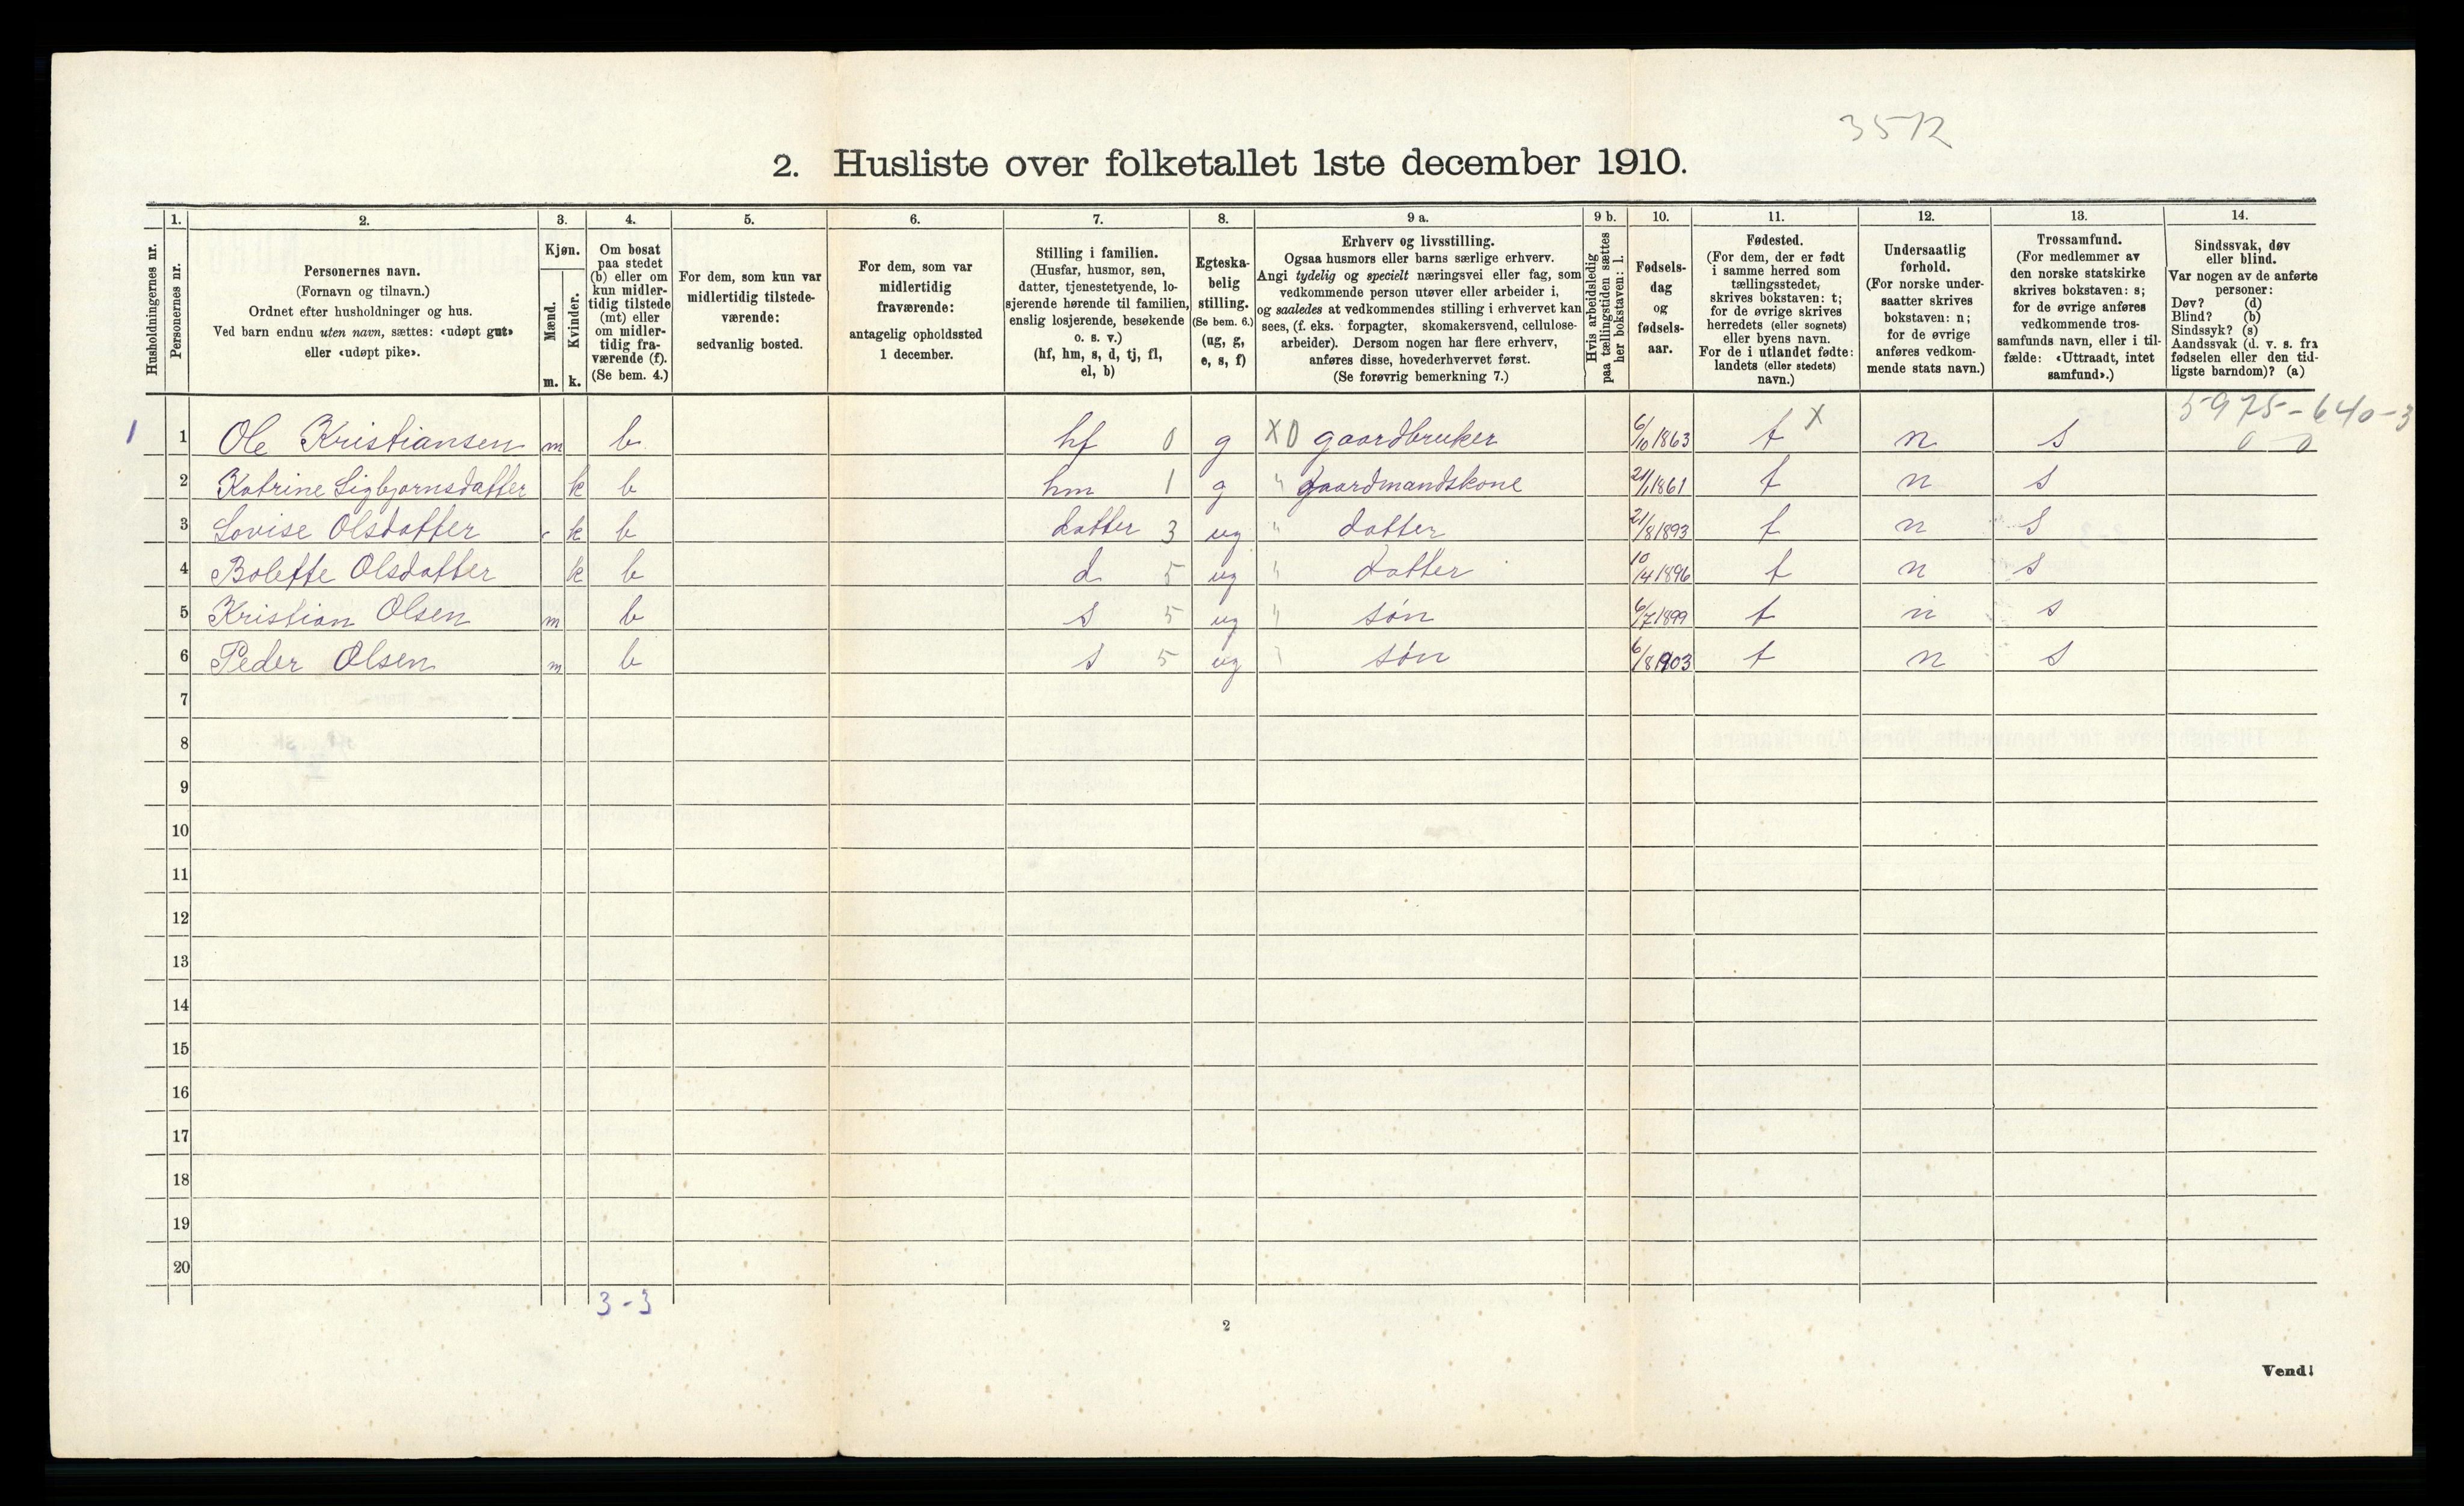 3512
2. Husliste over folketallet 1ste december 1910.
Husholdningernes nr.
1. Personernes nr.
2. Personernes navn. (Fornavn og tilnavn.) Ordnet efter husholdninger og hus. Ved barn endnu uten navn, sættes: «udøpt gut» eller «udøpt pike».
3. Kjøn. Mænd. m. Kvinder. k.
4. Om bosat paa stedet (b) eller om kun midlertidig tilstede (mt) eller om midlertidig fraværende (f). (Se bem. 4.)
5. For dem, som kun var midlertidig tilstedeværende: sedvanlig bosted.
6. For dem, som var midlertidig fraværende: antagelig opholdssted 1 december.
7. Stilling i familien. (Husfar, husmor, søn, datter, tjenestetyende, losjerende hørende til familien, enslig losjerende, besøkende o. s. v.) (hf, hm, s, d, tj, fl, el, b)
8. Egteskabelig stilling. (Se bem. 6.) (ug, g, e, s, f)
9 a. Erhverv og livsstilling. Ogsaa husmors eller barns særlige erhverv. Angi tydelig og specielt næringsvei eller fag, som vedkommende person utøver eller arbeider i, og saaledes at vedkommendes stilling i erhvervet kan sees, (f. eks. forpagter, skomakersvend, cellulosearbeider). Dersom nogen har flere erhverv, anføres disse, hovederhvervet først. (Se forøvrig bemerkning 7.)
9 b. Hvis arbeidsledig paa tællingstiden sættes her bokstaven: l.
10. Fødselsdag og fødselsaar.
11. Fødested. (For dem, der er født i samme herred som tællingsstedet, skrives bokstaven: t; for de øvrige skrives herredets (eller sognets) eller byens navn. For de i utlandet fødte: landets (eller stedets) navn.)
12. Undersaatlig forhold. (For norske undersaatter skrives bokstaven: n; for de øvrige anføres vedkommende stats navn.)
13. Trossamfund. (For medlemmer av den norske statskirke skrives bokstaven: s; for de øvrige anføres vedkommende trossamfunds navn, eller i tilfælde: «Uttraadt, intet samfund».)
14. Sindssvak, døv eller blind. Var nogen av de anførte personer: Døv? (d) Blind? (b) Sindssyk? (s) Aandssvak (d. v. s. fra fødselen eller den tidligste barndom)? (a)
5975-640-3
1 1 Ole Kristiansen m b hf 0 g X 0 gaardbruker 6/10 1863 t X n s 0 0
2 Katrine Sigbjørnsdatter k b hm 1 g " gaardmandskone 21/1 1861 t n s
3 Lovise Olsdatter k b datter 3 ug " datter 21/8 1893 t n s
4 Bolette Olsdatter k b d 5 ug " datter 10/4 1896 t n s
5 Kristian Olsen m b s 5 ug " søn 6/7 1899 t n s
6 Peder Olsen m b s 5 ug " søn 6/8 1903 t n s
7
8
9
10
11
12
13
14
15
16
17
18
19
20
3-3
2
Vend!